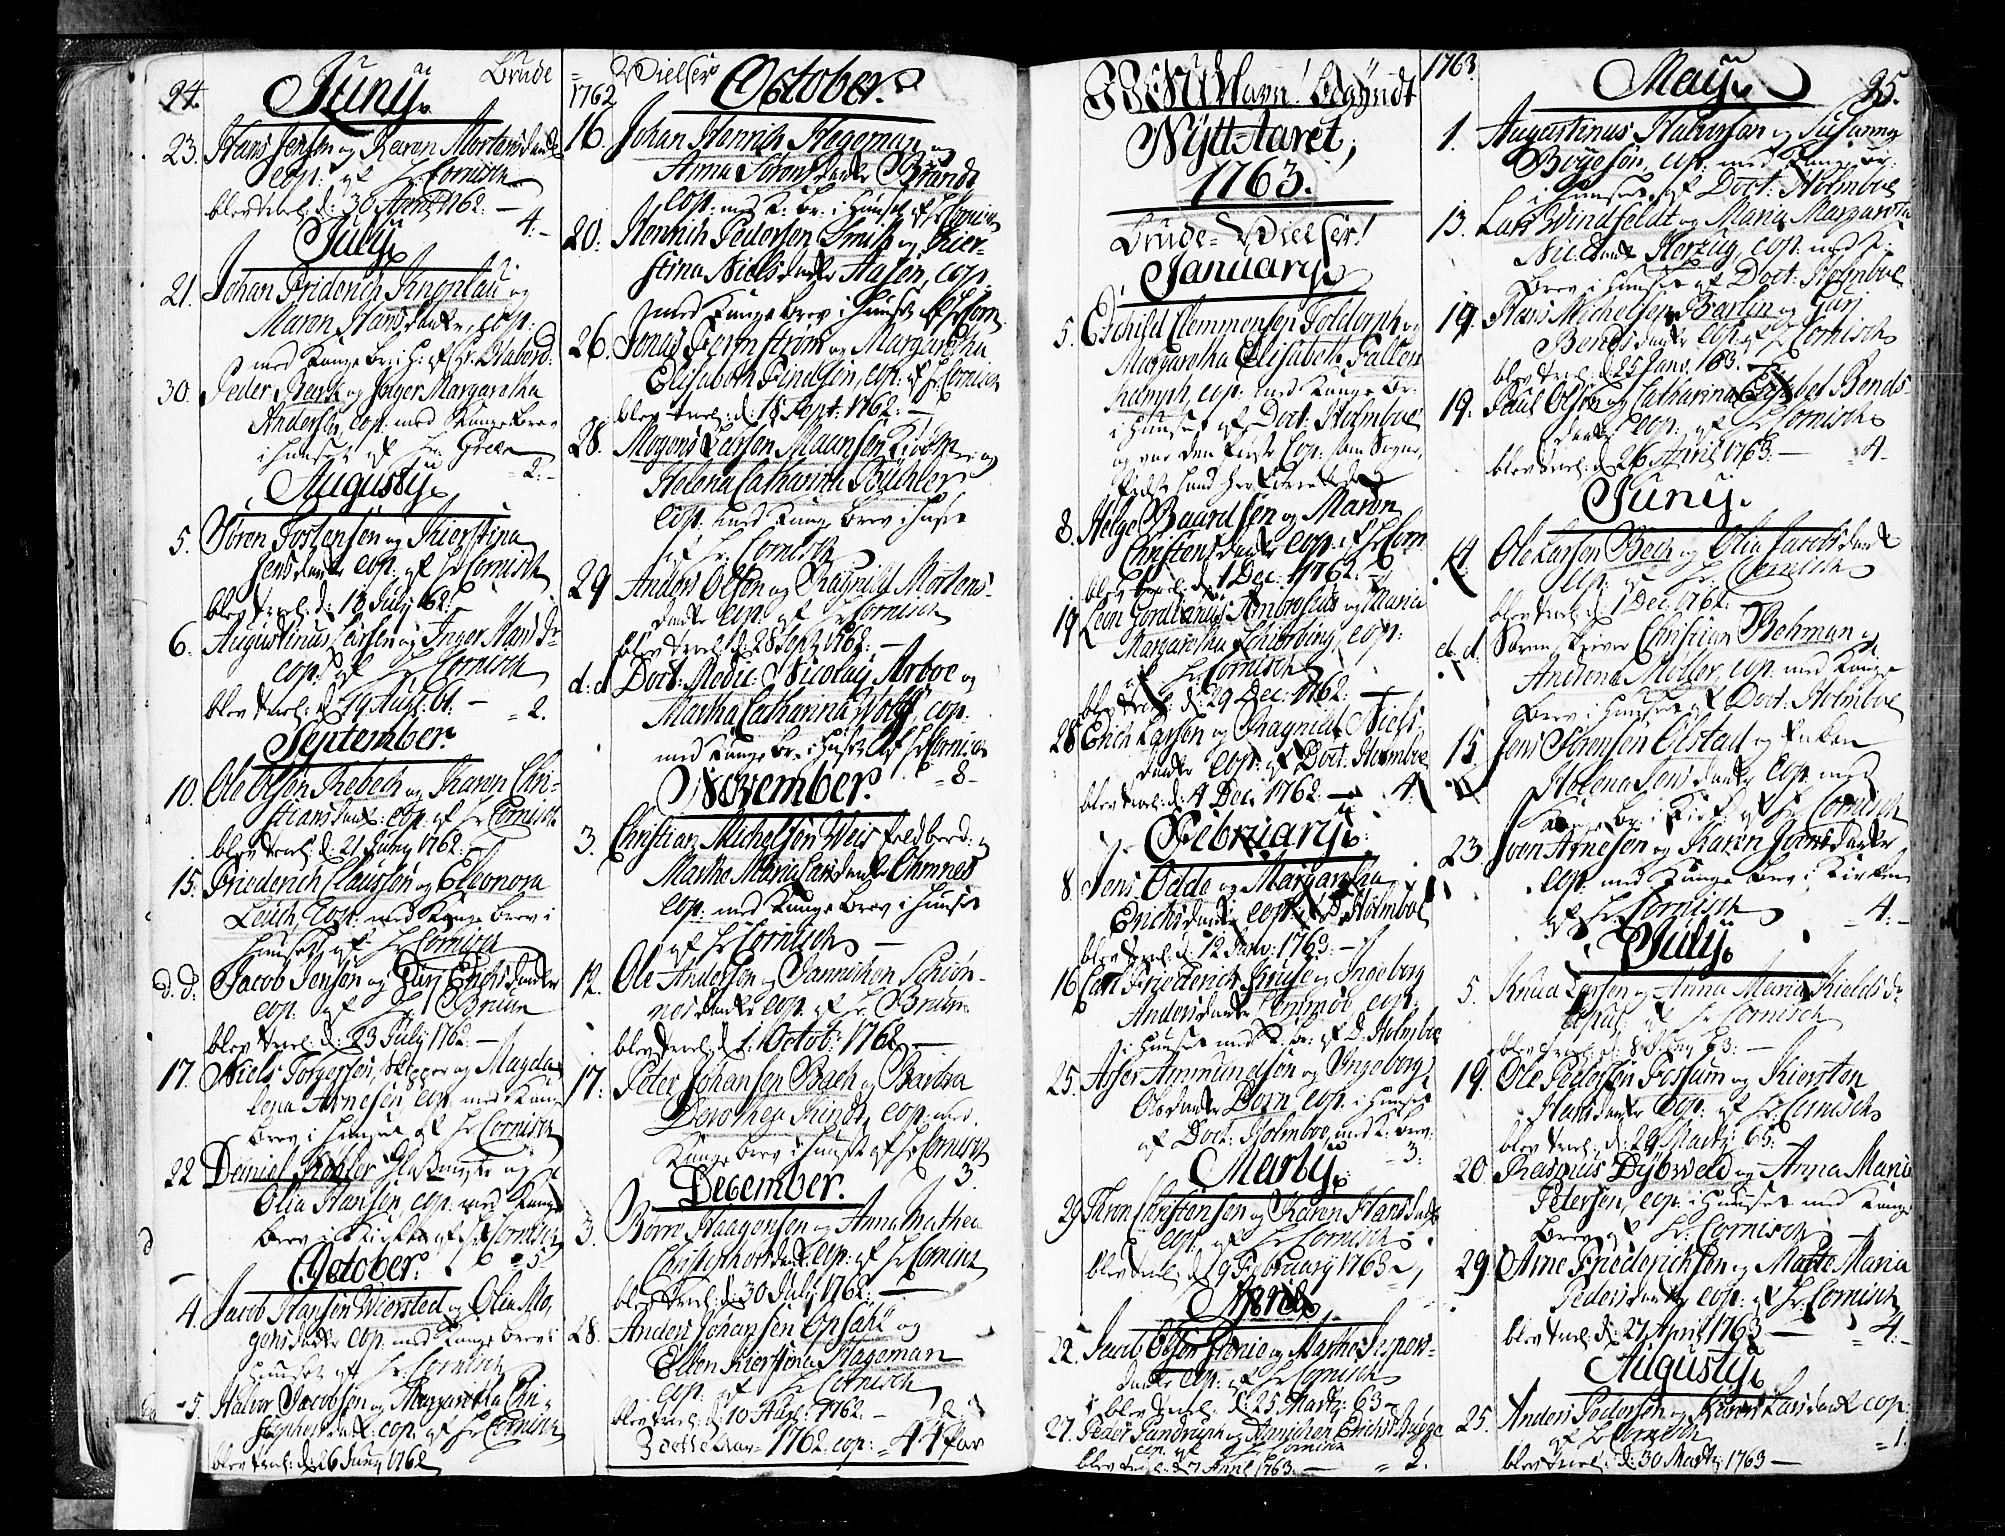 24. Brude
Junij.
23. Hans Jensen og Karen Mortensdaatter
cop: af Hr Cornisch
blev trol: d: 30 April 1762. —
4:-
July.
21. Johan Friderich og
Maren Hansdaatter, cop:
med Konge br: i H: af Hr:
30. Peder Renk og Inger Margaretha
Andersen, cop: med Konge Brev
i Huuset af Hr:
=2:-
Augustij.
5. Søren Torstensen og Kierstina
Jensdaatter cop: af Hr Cornisch
blev trol: d: 18 July 62. —
6. Augustinus Larsen og Inger Hansdr
cop: af Hr Cornisch
blev trol: d: 19 Aug: 61. —
=2.
September.
10. Ole Olsen Rebech og Karen Chri-
stiansdaat: cop: af Hr Cornisch
blev trol: d: 21 Juny 1762. —
15. Friederich Claussen og Eleonora
Leuch, Cop: med Konge Brev i
Huuset af Hr Cornisch
d. d: Jacob Jensen og Guri Erichsdaatter
cop: af Hr Bruun
blev trol: d: 23 July 1762. —
17. Niels Torgersen, Skipper og Magda-
lena Arnesen, cop: med Konge
Brev i Huuset af Hr Cornisch
22 Daniel Kohler og
Olia Hansen, cop: med Konge
Brev i Kirken af Hr Cornisch
=5-
October.
4. Jacob Hansen Wiersted og Olia Mo-
gensdaatter cop: med Konge Brev i
Huuset af Hr: Cornisch
5. Halvor Jacobsen og Margaretha Chri-
stophersdatt: cop: af Hr Cornisch
blev trol: d: 26 Juny 1762
= Vielser
1762 October.
16. Johan Henrich Hageman og
Anna Sørensdaatter Brandt
cop: med K: Br: i Huuset af Hr Cornisch
20: Henrich Pedersen Smith og Kier-
stina Nielsdaatter Aasen, cop:
med Konge Brev i Huuset af Hr Corn:
26. Jonas Fernstrøm og Margaretha
Elisabeth Findsen, cop: af Hr Cornisch
blev trol: d: 18 Sept: 1762. —
28. Mogens Larsen Maansen og
Helena Catharina Büchler
cop: med Konge Brev i Huuset
af Hr: Cornisch
29 Anders Olsen og Ragnild Mortens-
daatter cop: af Hr Cornisch
blev trol: d: 28 Sept 1762. —
d: d Doct: Medic: Nicolay Arboe og
Martha Catharina Wolff, cop:
med Konge Br: i Huuset af Hr Cornisch
=8-
November.
3. Christian Michelsen Weis og
Marthe Maria Larsdaatter Ohmnes
cop: med Konge Brev i Huuset
af Hr Cornisch —
12. Ole Andersen og
cop: af Hr Bruun
blev trol: d: 1: Octob: 1762. —
17: Peter Johansen Bach og Barbra
Dorothea Kindt, cop: med
Konge Brev i Huuset af Hr Cornisch
3.
December.
3. Børre Haagensen og Anna Mathea
Christophersdaat: cop: af Hr Cornisch
blev trol: d: 30 July 1762. —
28. Anders Johansen Opsahl og
Ellen Kierstina Hageman
cop: af Hr Cornisch
blev trol: d: 10 Aug: 1762. — =2.
1762 cop: =41 Par
I JESU Navn! begyndt
Nytt-Aaret,
1763.
Brude= Vielser!
January.
5. Eschild Clemmensen Toldorph og
Margaretha Elisabeth Fallen-
kamph, cop: med Konge Br:
i Huuset af Doct: Holmboe
og var den første Cop: som Sogne-
8. Helge Baardsen og Maren
Christensdaatter cop: af Hr Corn:
blev trol: d: 1 Dec: 1762. —
19 Leon Gordianus Ambrosius og Maria
Margaretha Schierbing, cop:
af Hr: Cornisch
blev trol: d: 29 Dec: 1762. —
28 Erich Larsen og Ragnild Niels-
daatter cop: af Doct: Holmboe
blev trol: d: 4 Dec: 1762. — 4.
February.
8. Jens Odde og Margaretha
Erichsdaatter cop: af D: Holmboe
blev trol: d: 12 Janv: 1763. —
16 Carl Friederich Kruse og Ingeborg
Andersdaatter cop:
i Huuset med K: Br: af D: Holmboe
25. Asser Ammundsen og Ingeborg
Olsdaatter Dorn cop: i Huuset
af Doct: Holmboe, med K: Brev:
=3:
Martij.
29 Thron Christensen og Karen Hansdaat:
cop: af Hr Cornisch
blev trol: d: 9 February 1763
April
22. Jacob Olsen og Marthe Jespers-
daatter cop: af Hr Cornisch
blev trol: d: 25 Martij 63
27. Peder og Annichen Erichsd:
cop: af Hr Cornisch
blev trol: d: 7 April 1763. — =2.
1763. 25.
May.
1. Augustinus Halvorsen og Susanna
Boyesen, cop: med Konge Br:
i Huuset af Doct: Holmboe
13. Lars Windfeldt og Maria Margareta
Nielsdaatter Herzug, cop: med K:
Brev i Huuset af Doct: Holmboe
19. Hans Michelsen Berlin og Guri
Bendsdaatter cop: af Hr Cornisch
blev trol: d: 25 Janv. 63.
19. Paul Olsen og Catharina Bends-
daatter cop: af Hr Cornisch
blev trol: d: 26 April 1763. — =4-
Juny.
14. Ole Larsen Bech og Olia Jacobsdaatter
cop: af Hr: Cornisch
blev trol: d: 1 Dec: 1762.
d. d. Christian Bohman og
Andrina Møller, cop: med Konge
Brev i Huuset af Doct: Holmboe
15. Jens Sørensen Olstad og Enken
Helena Jensdaatter cop: med
Konge Br: i Kirk: af Hr Cornisch
23 Sven Arnesen og Karen
cop: med Konge Brev i Kirken
af Hr Cornisch =4:-
July.
5. Knud Larsen og Anna Maria Kieldsdr
copul: af Hr Cornisch
blev trol: d: 8 63: —
19. Ole Pedersen Fossum og Kiersten
Hansdaatter cop: af Hr: Cornisch
blev trol: d: 29 Martij 63:
20. Rasmus Dybweld og Anna Maria
Petersen, cop: i Huuset med Konge
Brev af Hr: Cornisch —
29. Arne Friederichsen og Marte Maria
Pedersdaatter cop: af Hr: Cornisch
blev trol: d: 27 April 1763 — =4:-
Augustij.
25. Anders Pedersen og Karen Larsdaat cop:
af Hr Cornisch
=1.
blev trol: d: 30 Martij 1763 —